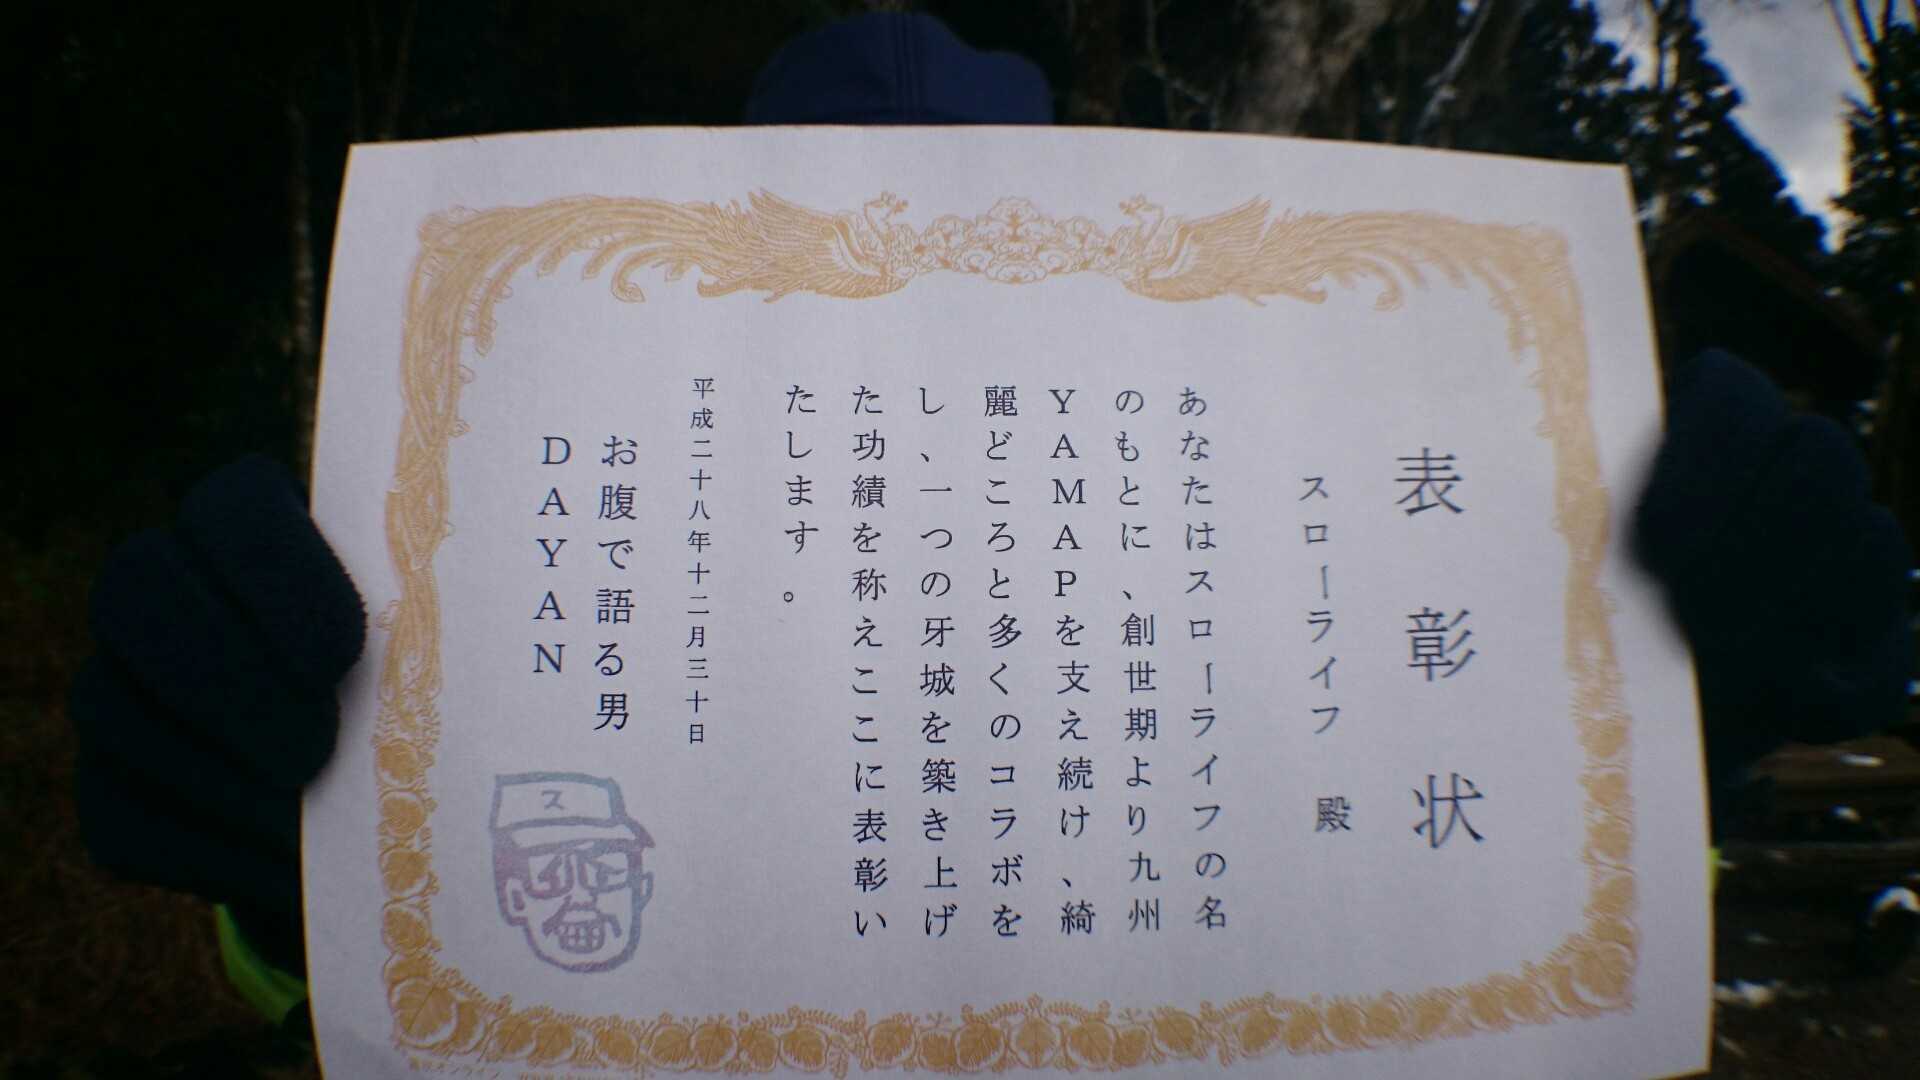 表彰状
スローライフ 殿
あなたはスローライフの名
のもとに、創世期より九州
YAMAPを支え続け、綺
麗どころと多くのコラボを
し、一つの牙城を築き上げ
た功績を称えここに表彰い
たします。
平成二十八年十二月三十日
お腹で語る男
DAYAN
ス